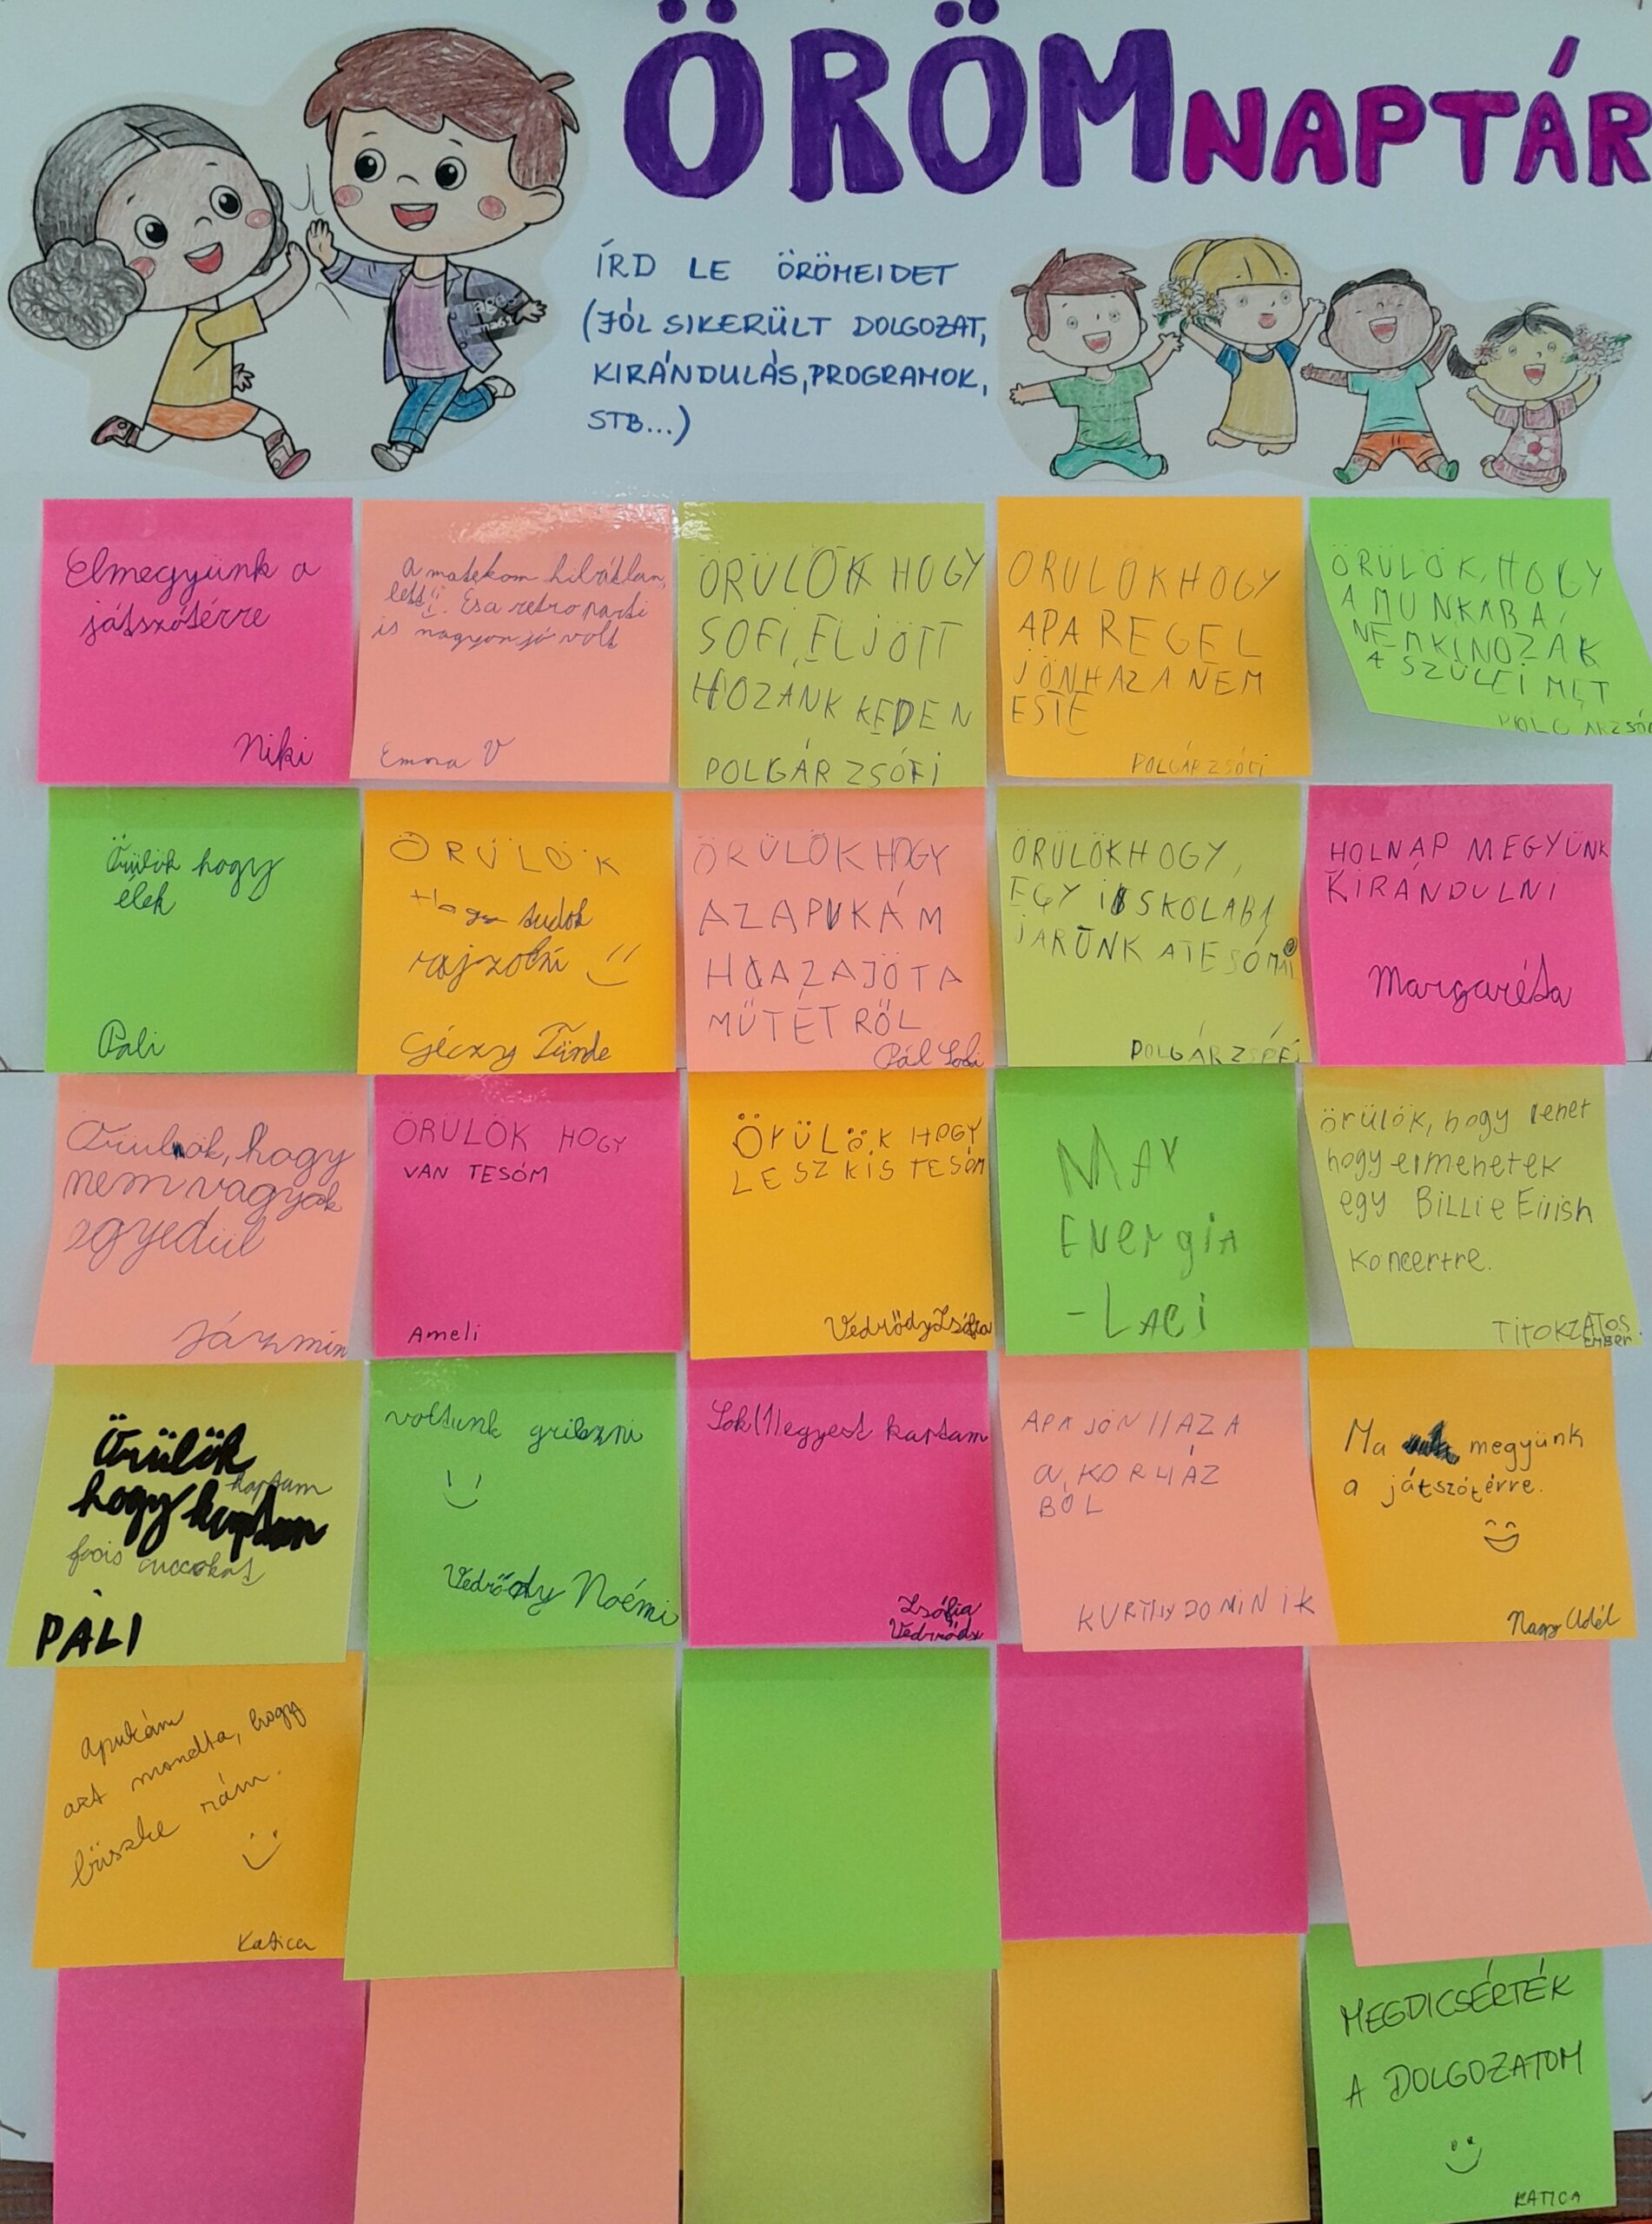 ÖRÖMNAPTÁR
ÍRD LE ÖRÖMEIDET
(JÓL SIKERÜLT DOLGOZAT,
KIRÁNDULÁS, PROGRAMOK,
STB...)
Elmegyünk a
játszótérre
Niki
A matekom hibátlan
lett. És a retro parti
is nagyon jó volt
Emma V
ÖRÜLÖK HOGY
SOFI ELJÖTT
HOZÁNK KEDEN
POLGÁR ZSÓFI
ÖRÜLÖK HOGY
APA REGEL
JÖN HAZA NEM
ESTE
POLGÁR ZSÓFI
ÖRÜLÖK, HOGY
A MUNKÁBA,
NEM KINOZÁK
A SZÜLEIMET
POLGÁR ZSÓFI
Örülök hogy
élek
Pali
ÖRÜLÖK
Hogy tudok
rajzolni
Géczy Tünde
ÖRÜLÖK HOGY
AZ APUKÁM
HAZAJÖT A
MŰTÉTRŐL
Pál Sofi
ÖRÜLÖK HOGY,
EGY ISKOLÁBA
JÁRUNK A TESÓMAI
POLGÁR ZSÓFI
HOLNAP MEGYÜNK
KIRÁNDULNI
Margaréta
Örülök, hogy
nem vagyok
egyedül
Jázmin
ÖRÜLÖK HOGY
VAN TESÓM
Ameli
ÖRÜLÖK HOGY
LESZ KIS TESÓM
Vedrődy Zsófia
MAX
ENERGIA
-LACI
Örülök, hogy lehet
hogy elmehetek
egy Billie Eilish
koncertre.
TITOKZATOS
EMBER
Örülök
hogy kaptam
kaptam
focis cuccokat
PALI
voltunk grillezni
Vedrődy Noémi
Sok (1) egyest kaptam
Zsófia
Vedrődy
APA JÖN HAZA
A KORHÁZ
BÓL
KURTHY DOMINIK
Ma megyünk
a játszótérre.
Nagy Adél
Apukám
azt mondta, hogy
büszke rám.
Katica
MEGDICSÉRTÉK
A DOLGOZATOM
KATICA